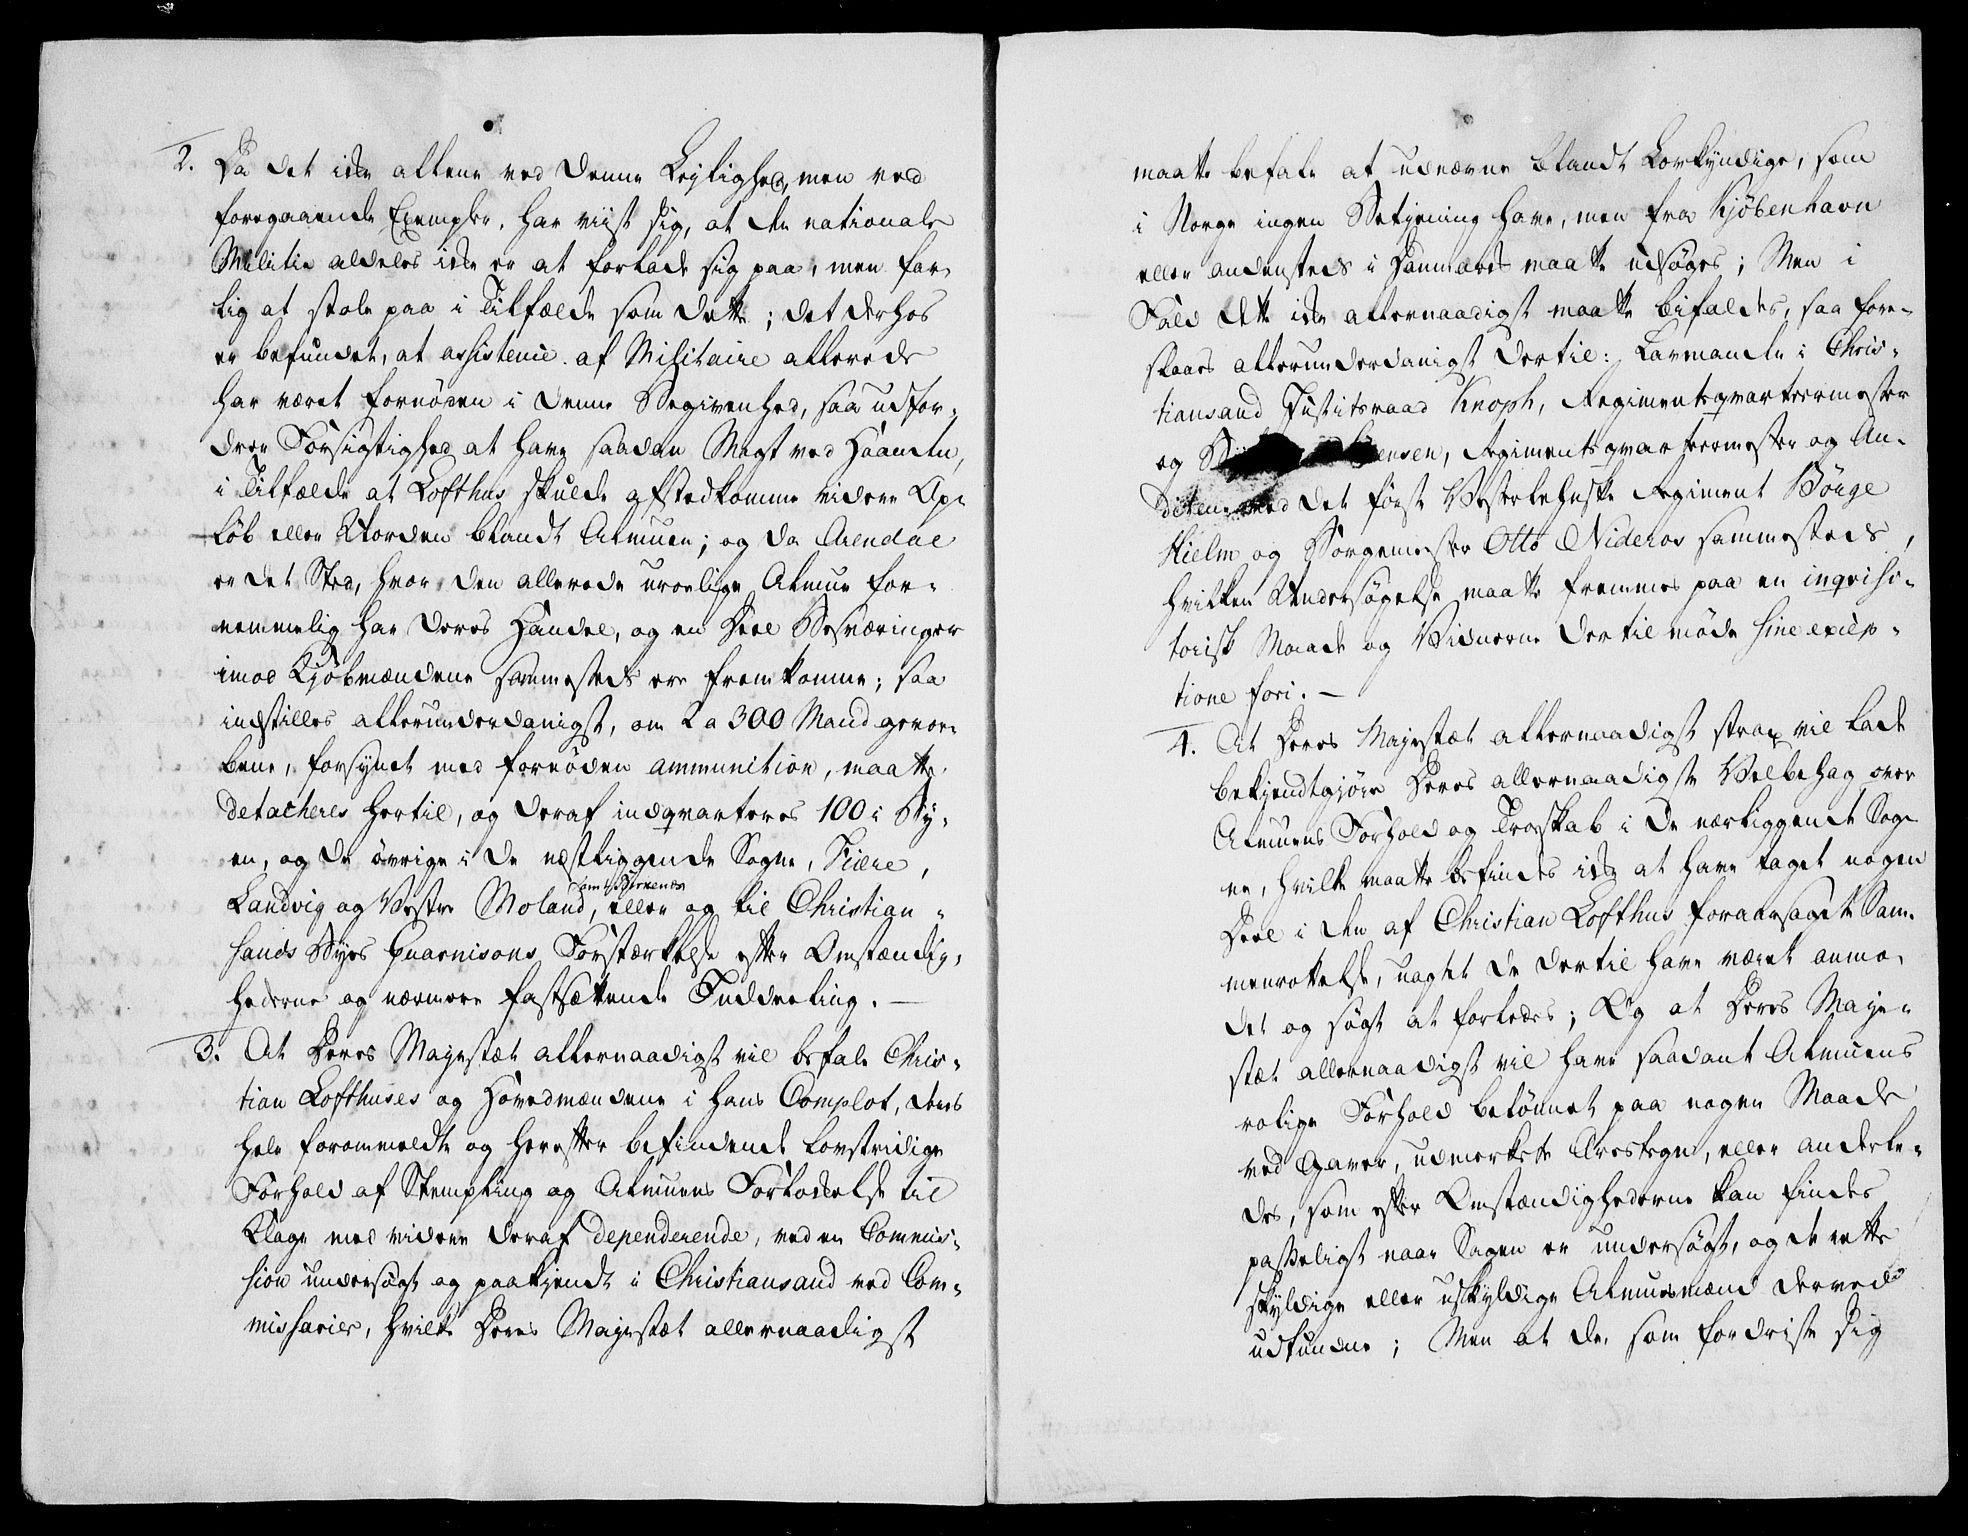 2. Da det icke allene ved denne Leylighed, men ved
foregaaende Exempler, har viist sig, at de nationale
Militie aldeles icke er at forlade sig paa, men far-
lig at stole paa i Tilfælde som dette; det derhos
er befundet, at assistence af Militaire allerede
har været fornöden i denne Begivenhed, saa udfor-
drer Forsigtighed at have saadan Magt ved Haanden,
i Tilfælde at Lofthus skulde afstedkomme videre Op-
löb eller Uorden blandt Almuen; og da Arendal
er det Sted, hvor den allerede uroelige Almue for-
nemmelig har deres Handel, og en Deel Besværinger
imod Kjöbmændene sammesteds ere fremkomne; saa
indstilles allerunderdanigst, om 2 a 300 Mand gevor-
bene, forsynet med fornöden ammunition, maatte
detacheres hertil, og deraf indqvarteres 100 i By-
en, og de övrige i de næstliggende Sogne, Fiære,
Landvig og Vestre Moland, eller og til Christian-
sands Byes Guarnisons Forstærkelse efter Omstændig-
hederne og nærmere fastsættende Inddeeling. —
3. At Deres Majestæt allernaadigst vil befale Chris-
tian Lofthuses og Hovedmændene i hans Complot, deres
hele forommeldte og herefter befindende lovstridige
Forhold af Stempling og Almuens Forlokkelse til
Klage med videre deraf dependerende, ved en Commis-
sion undersögt og paakjendt i Christiansand ved Com-
missarier, hvilke Deres Majestæt allernaadigst
maatte befale at udnævne blandt Lovkyndige, som
i Norge ingen Betjening have, men fra Kjöbenhavn
eller andensteds i Danmark maatte udsöges; Men i
Fald dette icke allernaadigst maatte bifaldes, saa fore-
slaaes allerunderdanigst dertil: Laugmanden i Chris-
tiansand Justitsraad Knoph, Regimentsqvarteermester
og ensen, Regimentsqvarteermester og Au-
diteur ved det förste Vesterlehnske Regiment Börge
Hielm og Borgemester Otto Nideros sammesteds,
hvilken Undersögelse maatte fremmes paa en inqvisi-
torisk Maade og Vidnerne dertil möde sine excep-
tione fori. —
4. At Deres Majestæt allernaadigst strax vil lade
bekjendtgjöre Deres allernaadigste Velbehag over
Almuens Forhold og Troskab i de nærliggende Sog-
ne, hvilke maatte befindes icke at have taget nogen
Deel i den af Christian Lofthus foraarsagede Sam-
menrottelse, uagtet de dertil have været anmo-
det og sögt at forledes; Og at Deres Maje-
stæt allernaadigst vil have saadant Almuens
rolige Forhold belönnet paa nogen Maade
ved Gaver, udmerkede Ærestegn, eller anderle-
des, som efter Omstændighederne kan findes
passeligst naar Sagen er undersögt, og de rette
skyldige eller uskyldige Almuesmænd derved
udfundne; Men at de, som fordriste sig